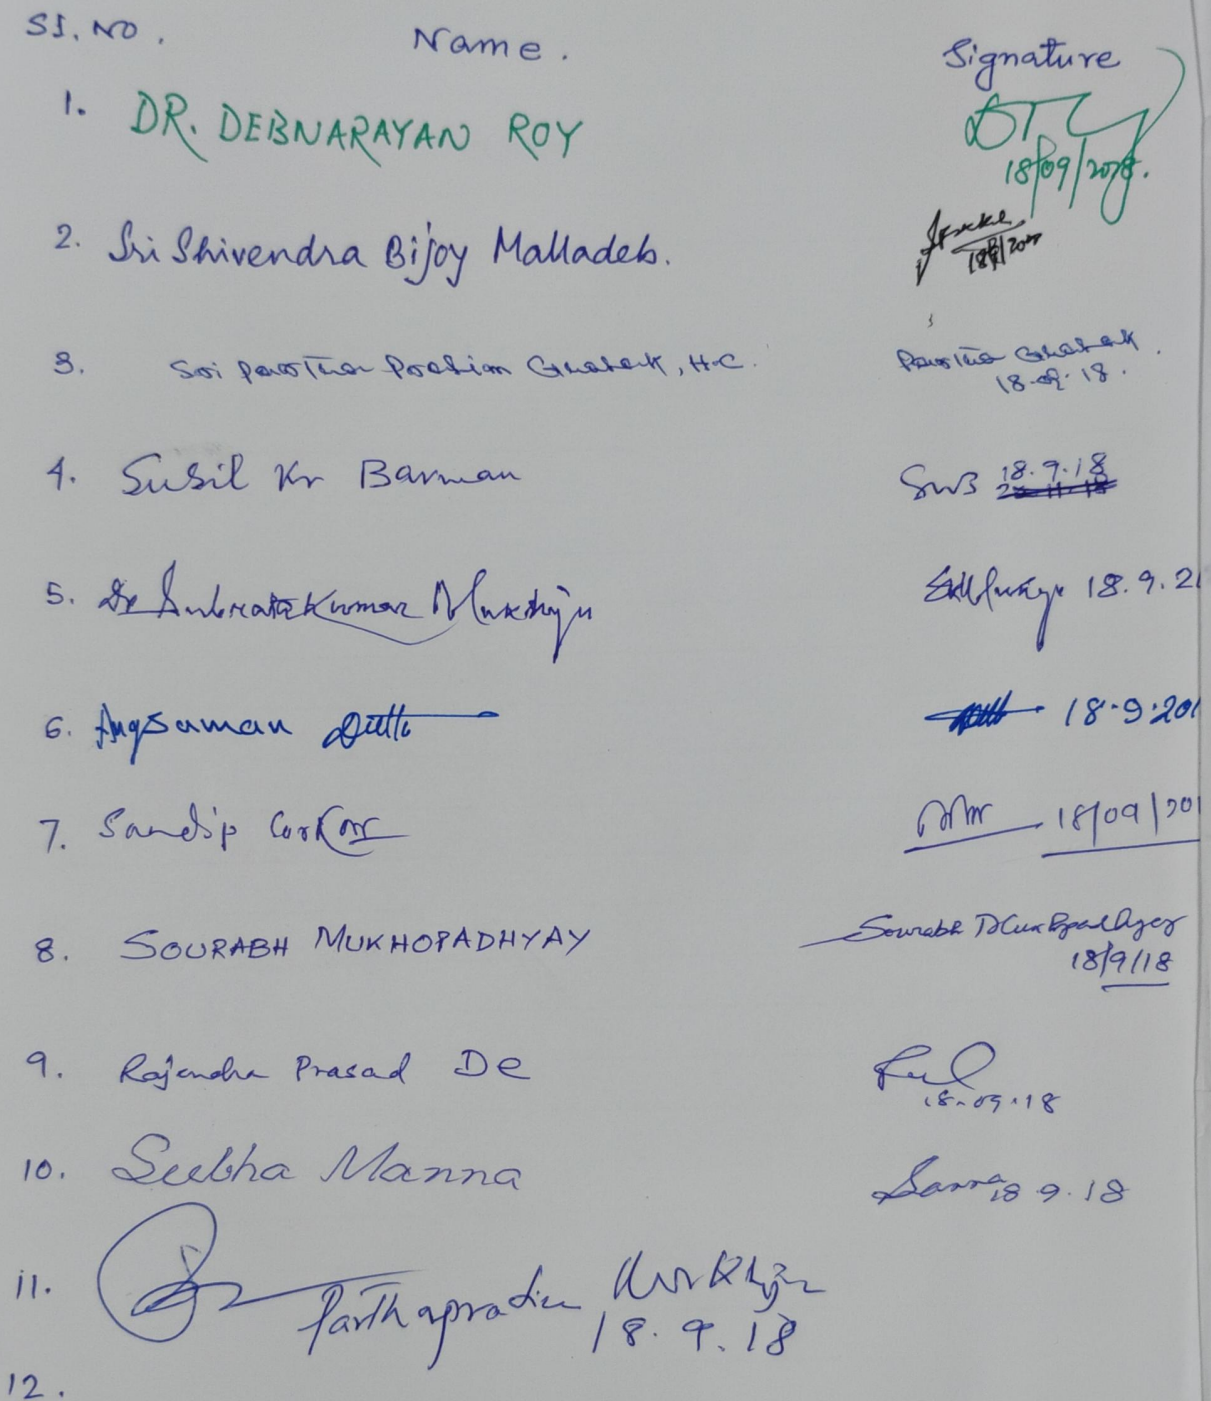 Sl. No. Name. Signature
1. DR. DEBNARAYAN ROY
18/09/2018.
2. Sri Shivendra Bijoy Malladeb.
3. Sri Partha Pratim Ghatak, H.C. Partha Ghatak
18.09.18.
4. Susil Kr Barman 18.9.18
5. Dr Subrata Kumar Mukherjee 18.9.2
6. Angsuman Dutta 18.9.201
7. Sandip 18/09/201
8. SOURABH MUKHOPADHYAY Sourabh Mukhopadhyay
18/9/18
9. Rajendra Prasad De
18.09.18
10. Subha Manna 18.9.18
11. Parthapratim Mukherjee
18.9.18
12.